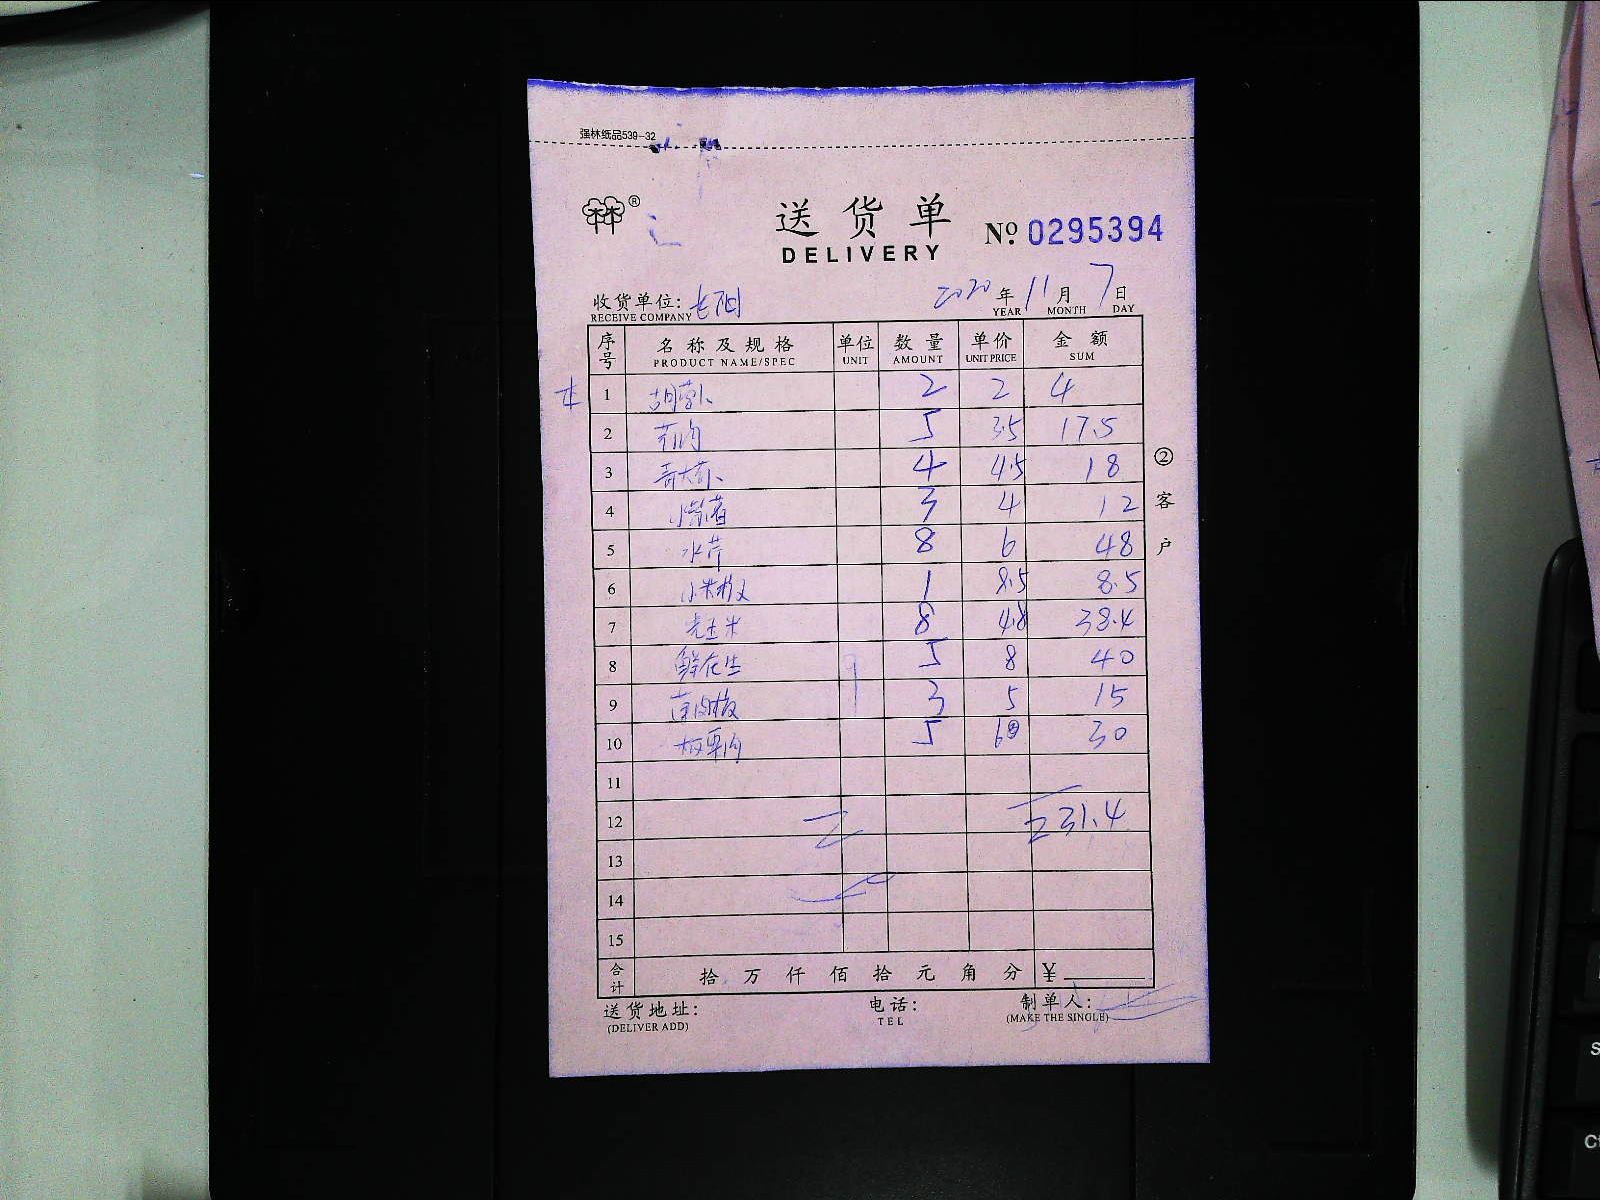 强林纸品539-32
林林®
送货单
DELIVERY
Nº 0295394
收货单位:
2020年11月7日
RECEIVE COMPANY YEAR MONTH DAY
序号 名称及规格 单位 数量 单价 金额
PRODUCT NAME/SPEC UNIT AMOUNT UNIT PRICE SUM
1 胡萝卜 2 2 4
2 5 3.5 17.5
3 4 4.5 18
4 3 4 12
5 水芹 8 6 48
6 小米椒 1 8.5 8.5
7 玉米 8 4.8 38.4
8 鲜花生 5 8 40
9 3 5 15
10 板栗肉 5 6 30
11
12 231.4
13
14
15
合计 拾万仟佰拾元角分 ¥
送货地址: 电话: 制单人:
(DELIVER ADD) TEL (MAKE THE SINGLE)
②客户